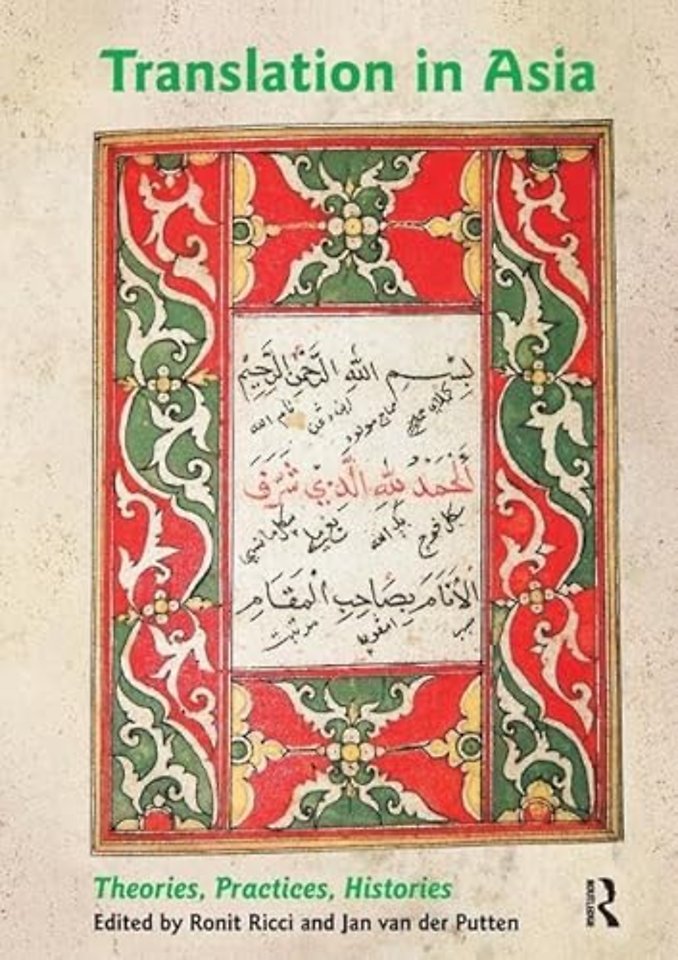 Translation in Asia
بِسْمِ اللهِ الرَّحْمٰنِ الرَّحِيْمِ
مولود نام الله
اَلْحَمْدُ لِلّٰهِ الَّذِيْ شَرَّفَ
سكل فوج بك الله
الْأَنَامَ بِصَاحِبِ الْمَقَامِ
Theories, Practices, Histories
Edited by Ronit Ricci and Jan van der Putten
ROUTLEDGE